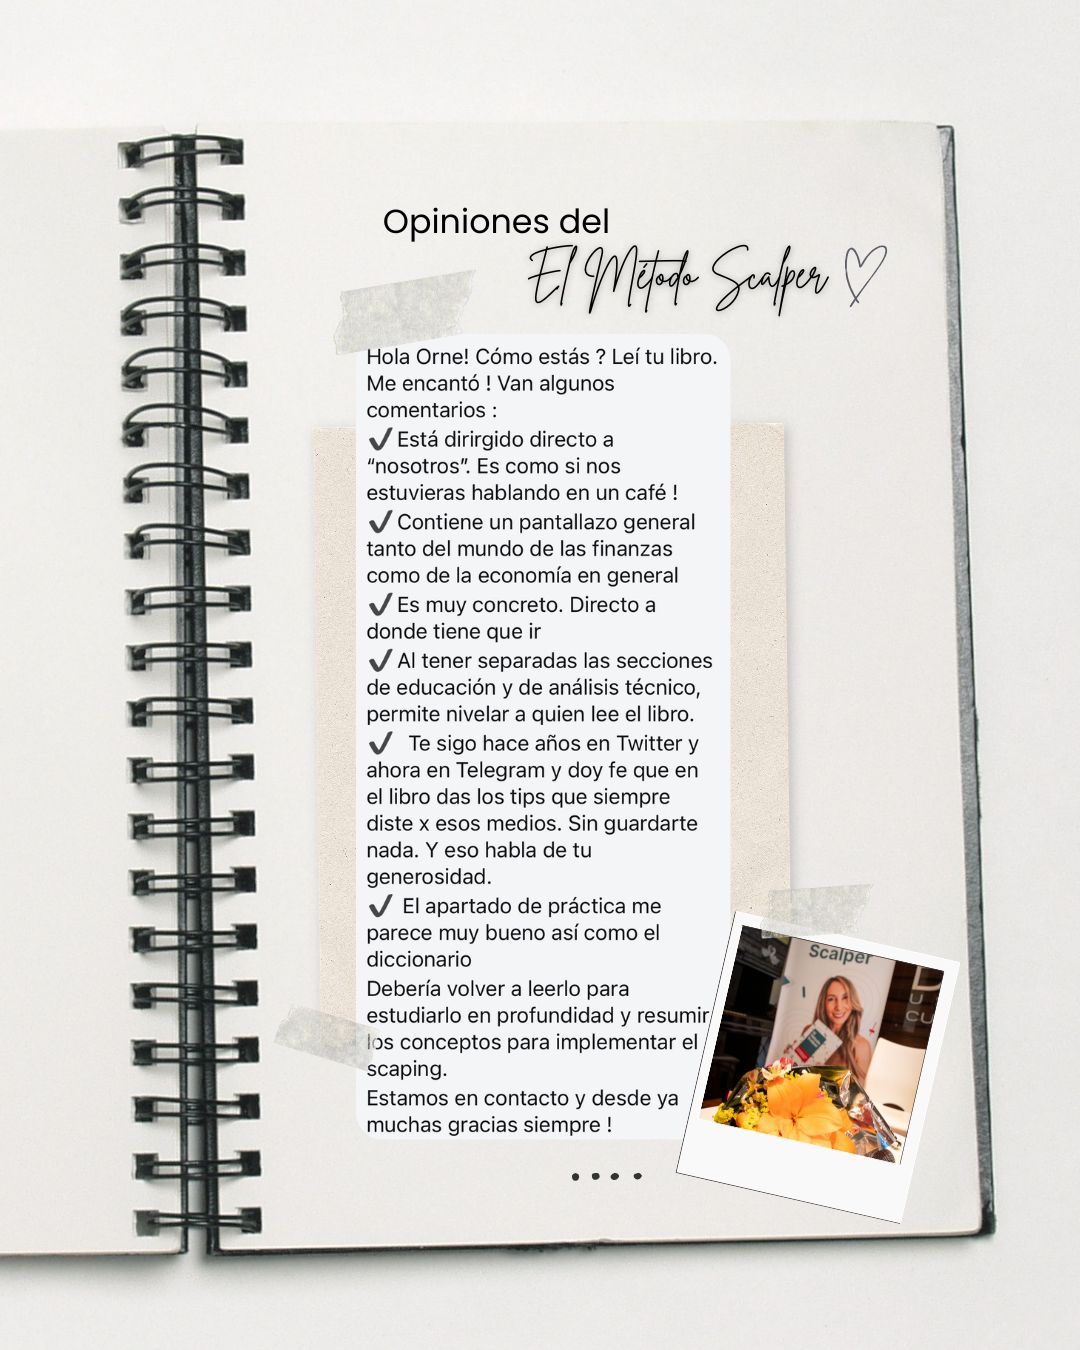 Opiniones del
El Método Scalper
Hola Orne! Cómo estás ? Leí tu libro.
Me encantó ! Van algunos
comentarios :
✔Está dirirgido directo a
“nosotros”. Es como si nos
estuvieras hablando en un café !
✔Contiene un pantallazo general
tanto del mundo de las finanzas
como de la economía en general
✔Es muy concreto. Directo a
donde tiene que ir
✔Al tener separadas las secciones
de educación y de análisis técnico,
permite nivelar a quien lee el libro.
✔ Te sigo hace años en Twitter y
ahora en Telegram y doy fe que en
el libro das los tips que siempre
diste x esos medios. Sin guardarte
nada. Y eso habla de tu
generosidad.
✔ El apartado de práctica me
parece muy bueno así como el
diccionario
Debería volver a leerlo para
estudiarlo en profundidad y resumir
los conceptos para implementar el
scaping.
Estamos en contacto y desde ya
muchas gracias siempre !
Scalper